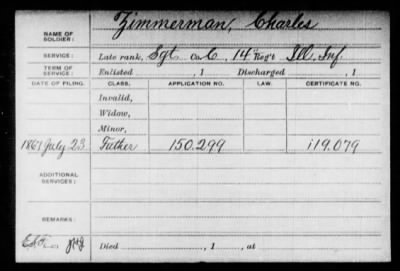 NAME OF SOLDIER: Zimmerman, Charles
SERVICE: Late rank, Sgt. Co. C, 14 Reg't Ill. Inf.
TERM OF SERVICE: Enlisted , 1 Discharged , 1
DATE OF FILING. CLASS. APPLICATION NO. LAW. CERTIFICATE NO.
Invalid,
Widow,
Minor,
1867 July 23 Father 150.299 119.079
ADDITIONAL SERVICES:
REMARKS:
Died , 1 , at